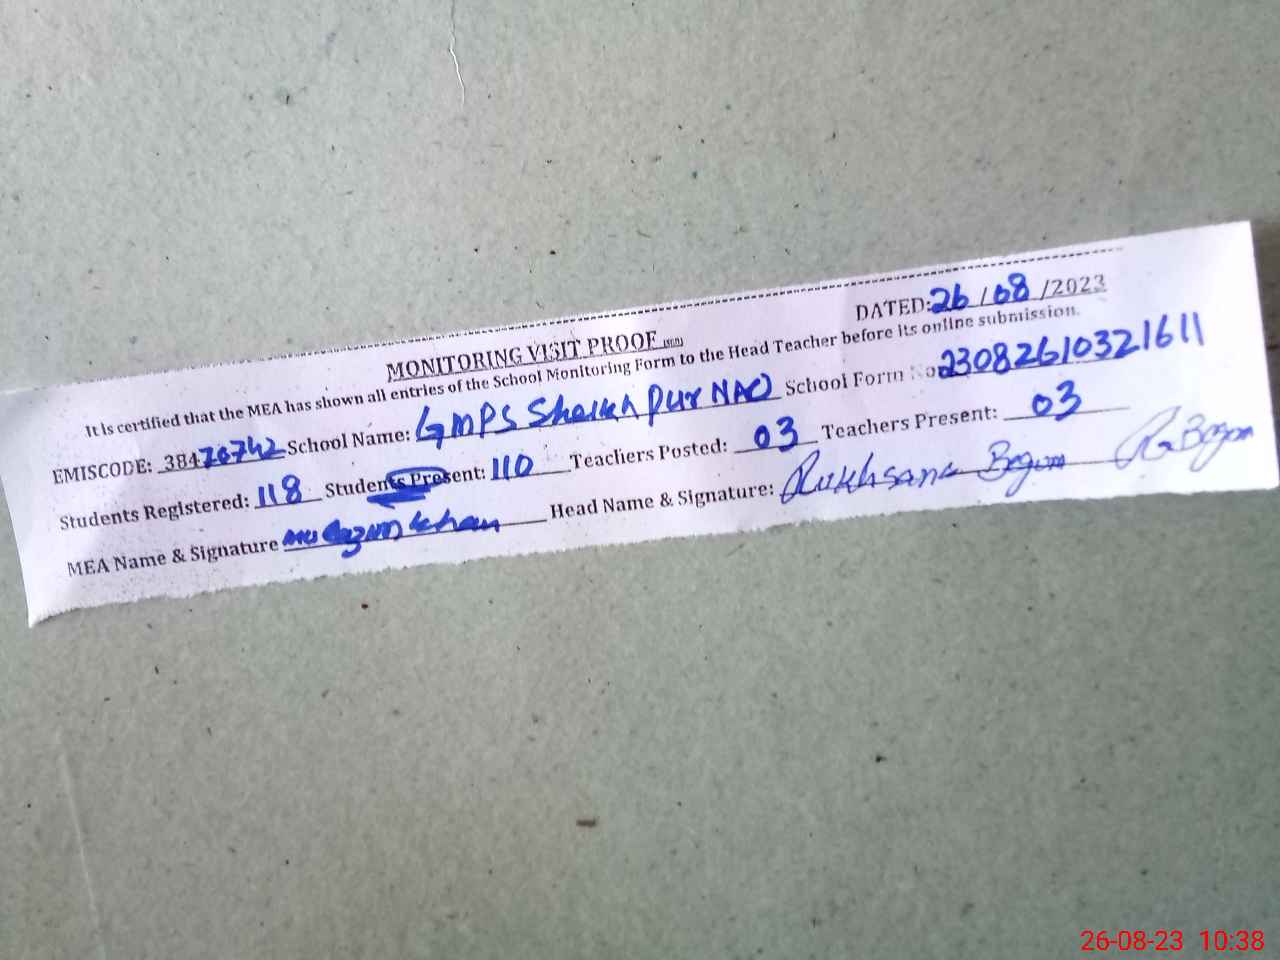 MONITORING VISIT PROOF DATED: 26/08/2023
It is certified that the MEA has shown all entries of the School Monitoring Form to the Head Teacher before its online submission.
EMISCODE: 384 School Name: GMPS Sheikh pur NAO School Form No 23082610321611
Students Registered: 118 Students Present: 110 Teachers Posted: 03 Teachers Present: 03
MEA Name & Signature Khan Head Name & Signature: Rukhsana Begum R Begum
26-08-23 10:38